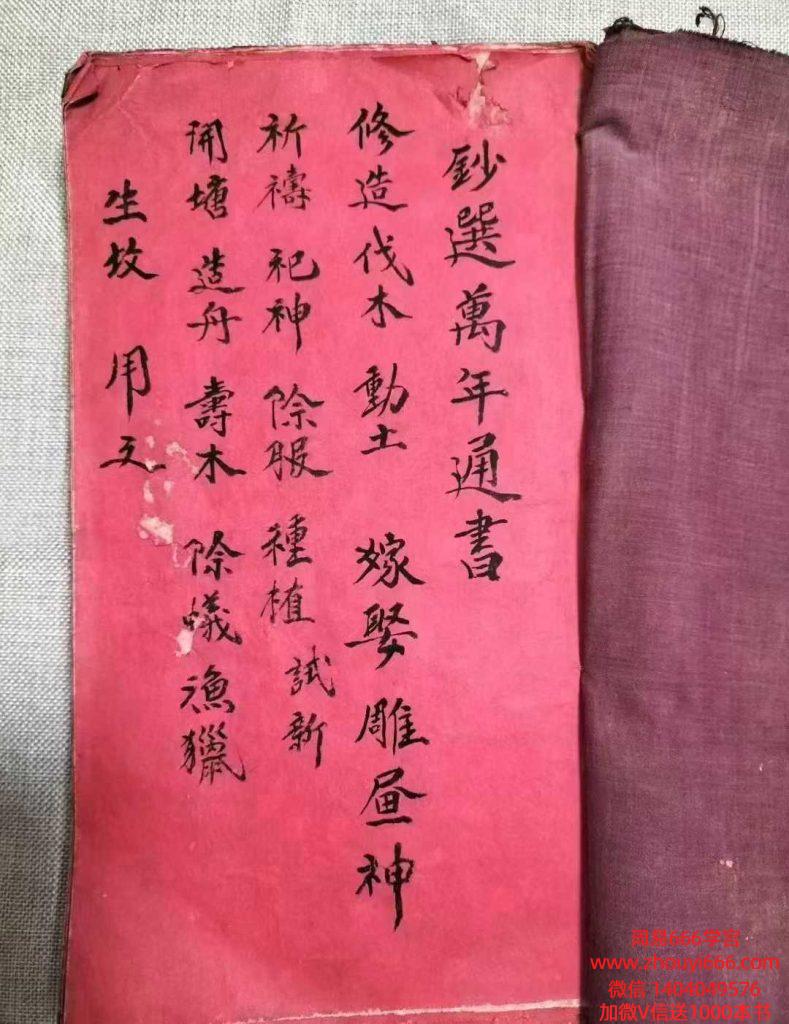 鈔選萬年通書
修造 伐木 動土 嫁娶 雕画神
祈禱 祀神 除服 種植 試新
開塘 造舟 壽木 除蟻 漁獵
生坟 用之
周易666学宫
www.zhouyi666.com
微信 1404049576
加微V信送1000本书